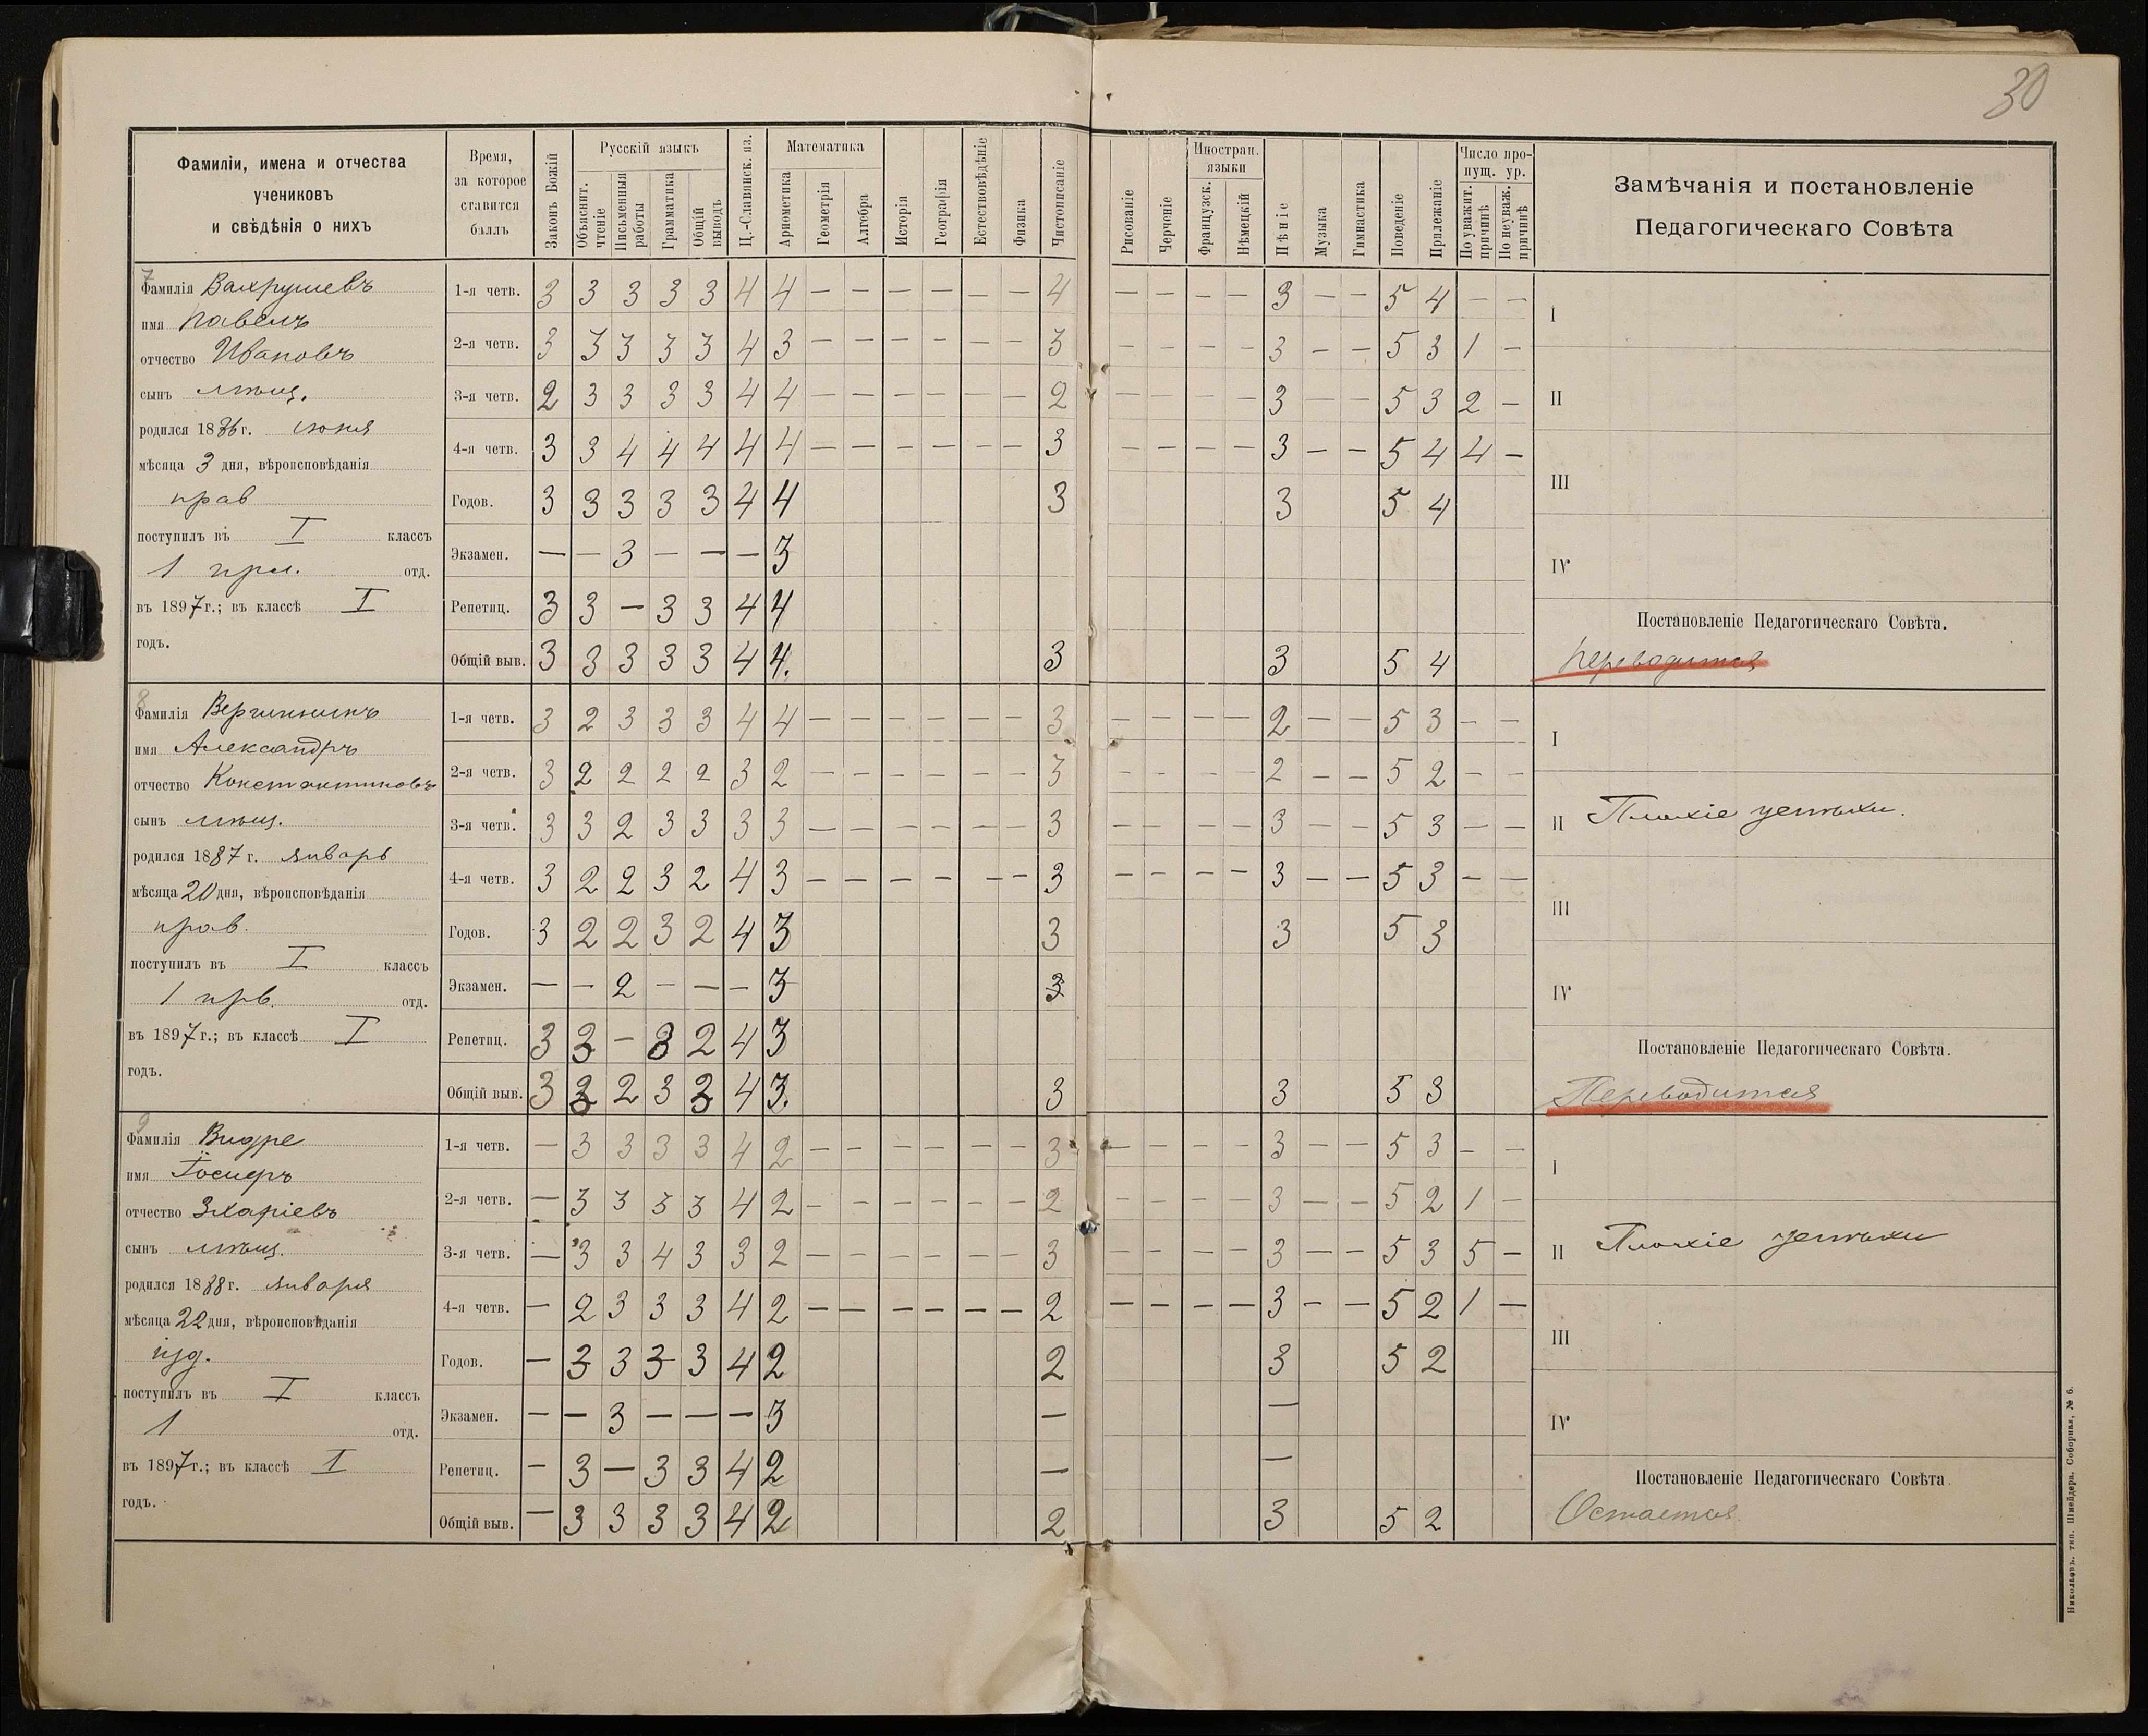 30
Фамиліи, имена и отчества
учениковъ
и свѣдѣнія о нихъ
Время,
за которое
ставится
баллъ
Законъ Божій
Русскій языкъ
Объяснит. чтеніе
Письменныя работы
Грамматика
Общій выводъ
Ц.-Славянск. яз.
Математика
Ариѳметика
Геометрія
Алгебра
Исторія
Географія
Естествовѣдѣніе
Физика
Чистописаніе
Рисованіе
Черченіе
Иностран. языки
Французск.
Нѣмецкій
Пѣніе
Музыка
Гимнастика
Поведеніе
Прилежаніе
Число пропущ. ур.
По уважит. причинѣ
По неуваж. причинѣ
Замѣчанія и постановленіе
Педагогическаго Совѣта
7
Фамилія Вахрушевъ
имя Павелъ
отчество Ивановъ
сынъ мѣщ.
родился 1886 г. іюня
мѣсяца 3 дня, вѣроисповѣданія
прав
поступилъ въ I классъ
1 отд.
въ 1897 г.; въ классѣ I
годъ.
1-я четв. 3 3 3 3 3 4 4 — — — — — — 4 — — — — 3 — — 5 4 — —
2-я четв. 3 3 3 3 3 4 3 — — — — — — 3 — — — — 3 — — 5 3 1 —
3-я четв. 2 3 3 3 3 4 4 — — — — — — 2 — — — — 3 — — 5 3 2 —
4-я четв. 3 3 4 4 4 4 4 — — — — — — 3 — — — — 3 — — 5 4 4 —
Годов. 3 3 3 3 3 4 4 3 3 5 4
Экзамен. — — 3 — — — 3
Репетиц. 3 3 — 3 3 4 4
Общій выв. 3 3 3 3 3 4 4. 3 3 5 4
I
II
III
IV
Постановленіе Педагогическаго Совѣта.
Переводится
8
Фамилія
имя Александръ
отчество Константиновъ
сынъ мѣщ.
родился 1887 г. январь
мѣсяца 20 дня, вѣроисповѣданія
прав.
поступилъ въ I классъ
1 отд.
въ 1897 г.; въ классѣ I
годъ.
1-я четв. 3 2 3 3 3 4 4 — — — — — — 3 — — — — 2 — — 5 3 — —
2-я четв. 3 2 2 2 2 3 2 — — — — — — 3 — — — — 2 — — 5 2 — —
3-я четв. 3 3 2 3 3 3 3 — — — — — — 3 — — — — 3 — — 5 3 — —
4-я четв. 3 2 2 3 2 4 3 — — — — — — 3 — — — — 3 — — 5 3 — —
Годов. 3 2 2 3 2 4 3 3 3 5 3
Экзамен. — — 2 — — — 3 3
Репетиц. 3 3 — 3 2 4 3
Общій выв. 3 3 2 3 3 4 3. 3 3 5 3
I
II Плохіе успѣхи.
III
IV
Постановленіе Педагогическаго Совѣта.
Переводится
9
Фамилія Видре
имя Іосифъ
отчество Зхаріевъ
сынъ мѣщ.
родился 1888 г. января
мѣсяца 22 дня, вѣроисповѣданія
іуд.
поступилъ въ I классъ
1 отд.
въ 1897 г.; въ классѣ I
годъ.
1-я четв. — 3 3 3 3 4 2 — — — — — — 3 — — — — 3 — — 5 3 — —
2-я четв. — 3 3 3 3 4 2 — — — — — — 2 — — — — 3 — — 5 2 1 —
3-я четв. — 3 3 4 3 3 2 — — — — — — 3 — — — — 3 — — 5 3 5 —
4-я четв. — 2 3 3 3 4 2 — — — — — — 2 — — — — 3 — — 5 2 1 —
Годов. — 3 3 3 3 4 2 2 3 5 2
Экзамен. — — 3 — — — 3 — —
Репетиц. — 3 — 3 3 4 2 — —
Общій выв. — 3 3 3 3 4 2 2 3 5 2
I
II Плохіе успѣхи
III
IV
Постановленіе Педагогическаго Совѣта.
Остается
Николаевъ, тип. Шнейдера, Соборная, № 6.